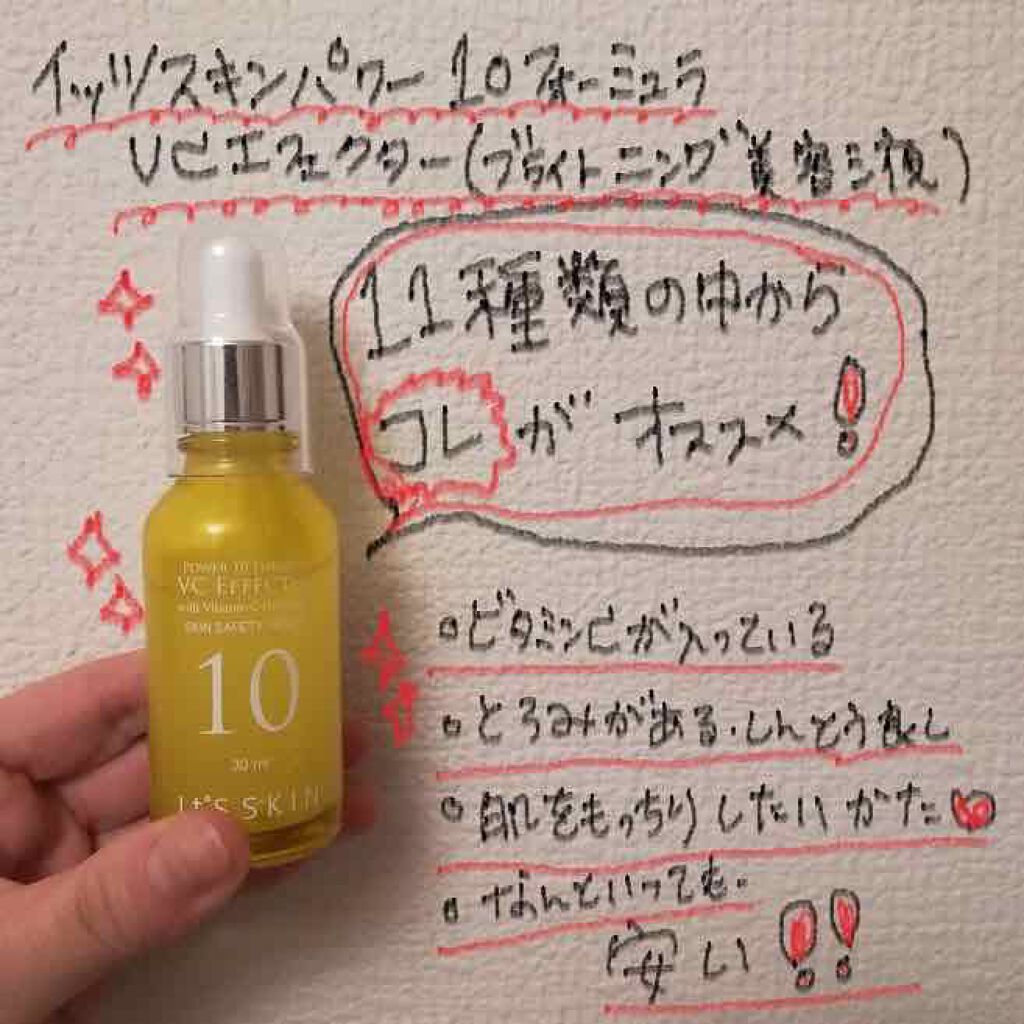 イッツスキンパワー10フォーミュラ
VCエフェクター(ブライトニング美容液)
11種類の中から
コレがオススメ!
ビタミンCが入っている
とろみがある.しんとう良し
肌をもっちりしたいかた
なんといっても.
安い!!
POWER 10
VC EFFECT
with Vitamin C
SKIN SAFETY
10
30 ml
It's SKIN